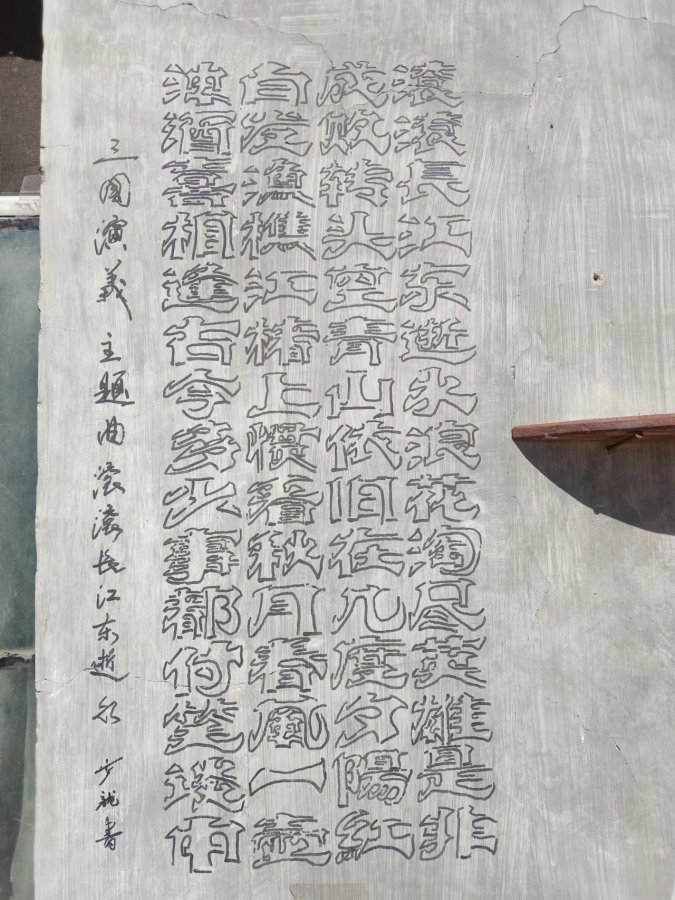 滚滚長江东逝水浪花淘尽英雄是非
成败转头空青山依旧在几度夕陽紅
白发渔樵江渚上惯看秋月春風一壶
浊酒喜相逢古今多少事都付笑谈中
三國演義主题曲滚滚长江东逝水 少龍書